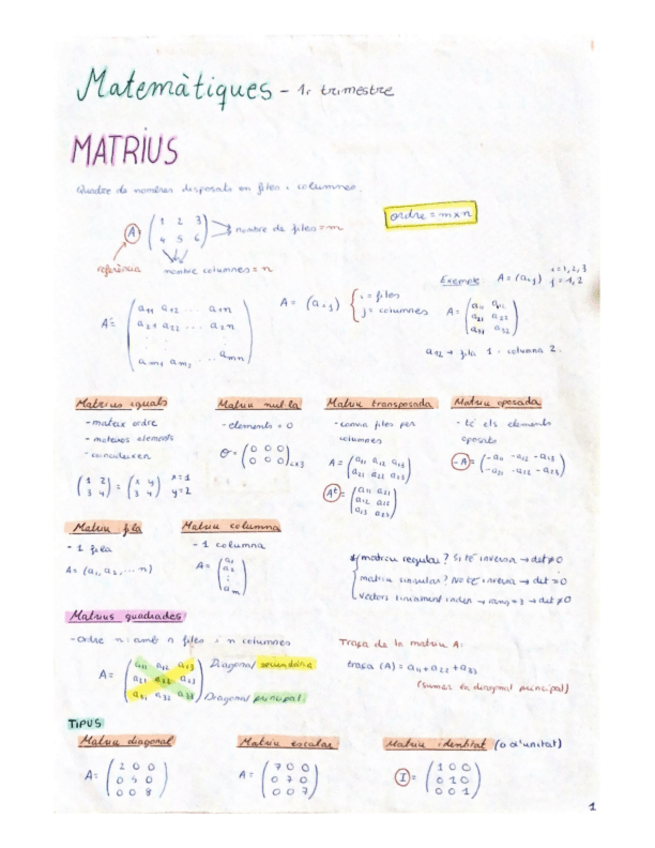 Matemàtiques - 1r trimestre
MATRIUS
Quadre de nombres disposats en files i columnes.
ordre = m x n
A = ( 1 2 3
4 5 6 )
nombre de files = m
referència
nombre columnes = n
Exemple A = (aij) i = 1, 2, 3
j = 1, 2
A = ( a11 a12 ... a1n
a21 a22 ... a2n
am1 am2 ... amn )
A = (aij) { i = files
j = columnes
A = ( a11 a12
a21 a22
a31 a32 )
a12 → fila 1 i columna 2.
Matrius iguals
- mateix ordre
- mateixos elements
- coincideixen
( 1 2
3 4 ) = ( x y
3 4 ) x = 1
y = 2
Matriu nul·la
- elements = 0
O = ( 0 0 0
0 0 0 ) 2x3
Matriu transposada
- canvia files per
columnes
A = ( a11 a12 a13
a21 a22 a23 )
At = ( a11 a21
a12 a22
a13 a23 )
Matriu oposada
- té els elements
oposats
-A = ( -a11 -a12 -a13
-a21 -a22 -a23 )
Matriu fila
- 1 fila
A = (a1, a2, ... n)
Matriu columna
- 1 columna
A = ( a1
a2
⋮
am )
matriu regular? Si té inversa → det ≠ 0
matriu singular? No té inversa → det = 0
vectors linialment inden → rang = 3 → det ≠ 0
Matrius quadrades
- Ordre n: amb n files i n columnes
A = ( a11 a12 a13
a21 a22 a23
a31 a32 a33 )
Diagonal secundària
Diagonal principal
Traça de la matriu A:
traça (A) = a11 + a22 + a33
(sumar la diagonal principal)
TIPUS
Matriu diagonal
A = ( 2 0 0
0 5 0
0 0 8 )
Matriu escalar
A = ( 7 0 0
0 7 0
0 0 7 )
Matriu identitat (o d'unitat)
I = ( 1 0 0
0 1 0
0 0 1 )
1